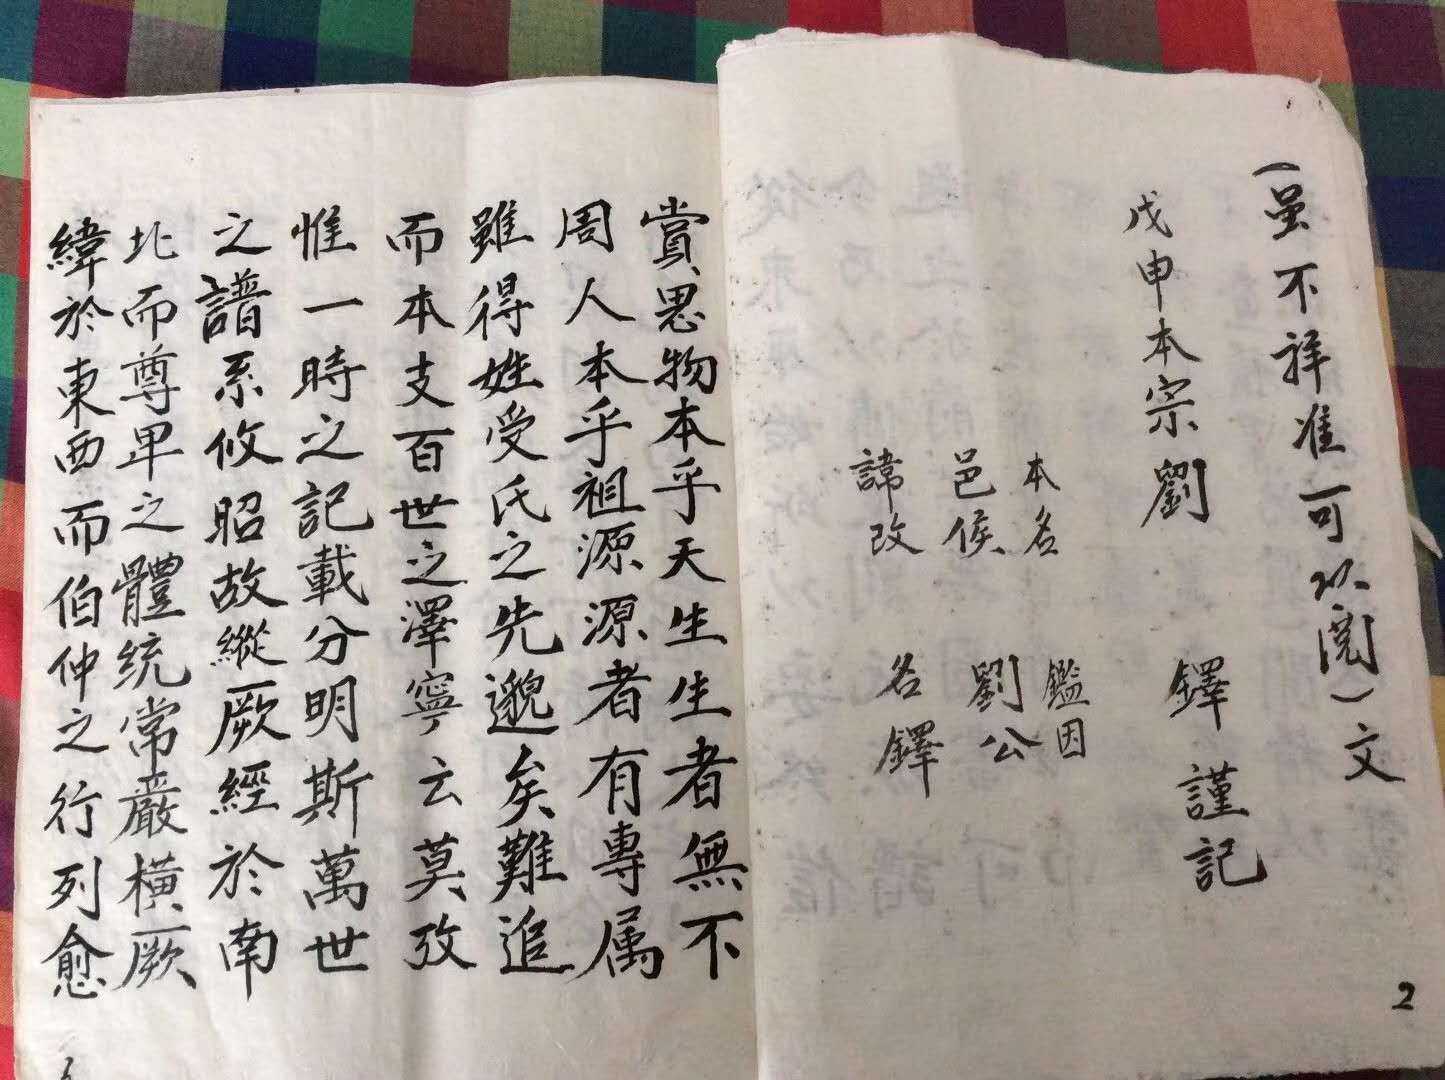 (虽不祥准可以阅)文
戊申本宗劉 鐸謹記
本名 鑑因
邑侯 劉公
諱改 名鐸
2
賞思物本乎天生生者無不
周人本乎祖源源者有專属
雖得姓受氏之先邈矣難追
而本支百世之澤寧云莫攷
惟一時之記載分明斯萬世
之譜系攸昭故縱厥經於南
北而尊卑之體統常嚴橫厥
緯於東西而伯仲之行列愈